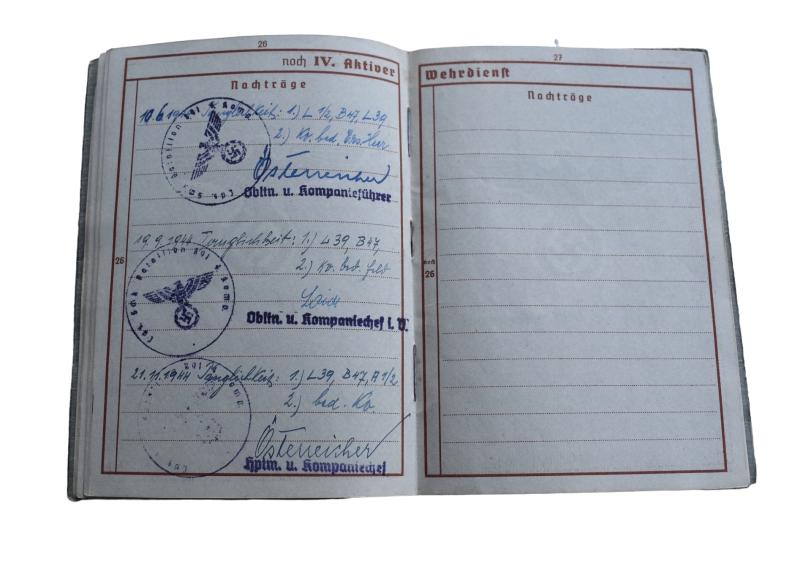 26
noch IV. Aktiver
Nachträge
Tauglichkeit: 1.) L 1/2, B 47, L 39
2.) Kv. bed. Ers Heer
Österreicher
Obltn. u. Kompanieführer
19.9.1944 Tauglichkeit: 1.) L 39, B 47,
26
2.) Kv. bed. Feld
Obltn. u. Kompaniechef i. V.
21.11.1944 Tauglichkeit: 1.) L 39, B 47, A 1/2
2.) bed. Kv.
Österreicher
Hptm. u. Kompaniechef
27
Wehrdienst
Nachträge
noch
26